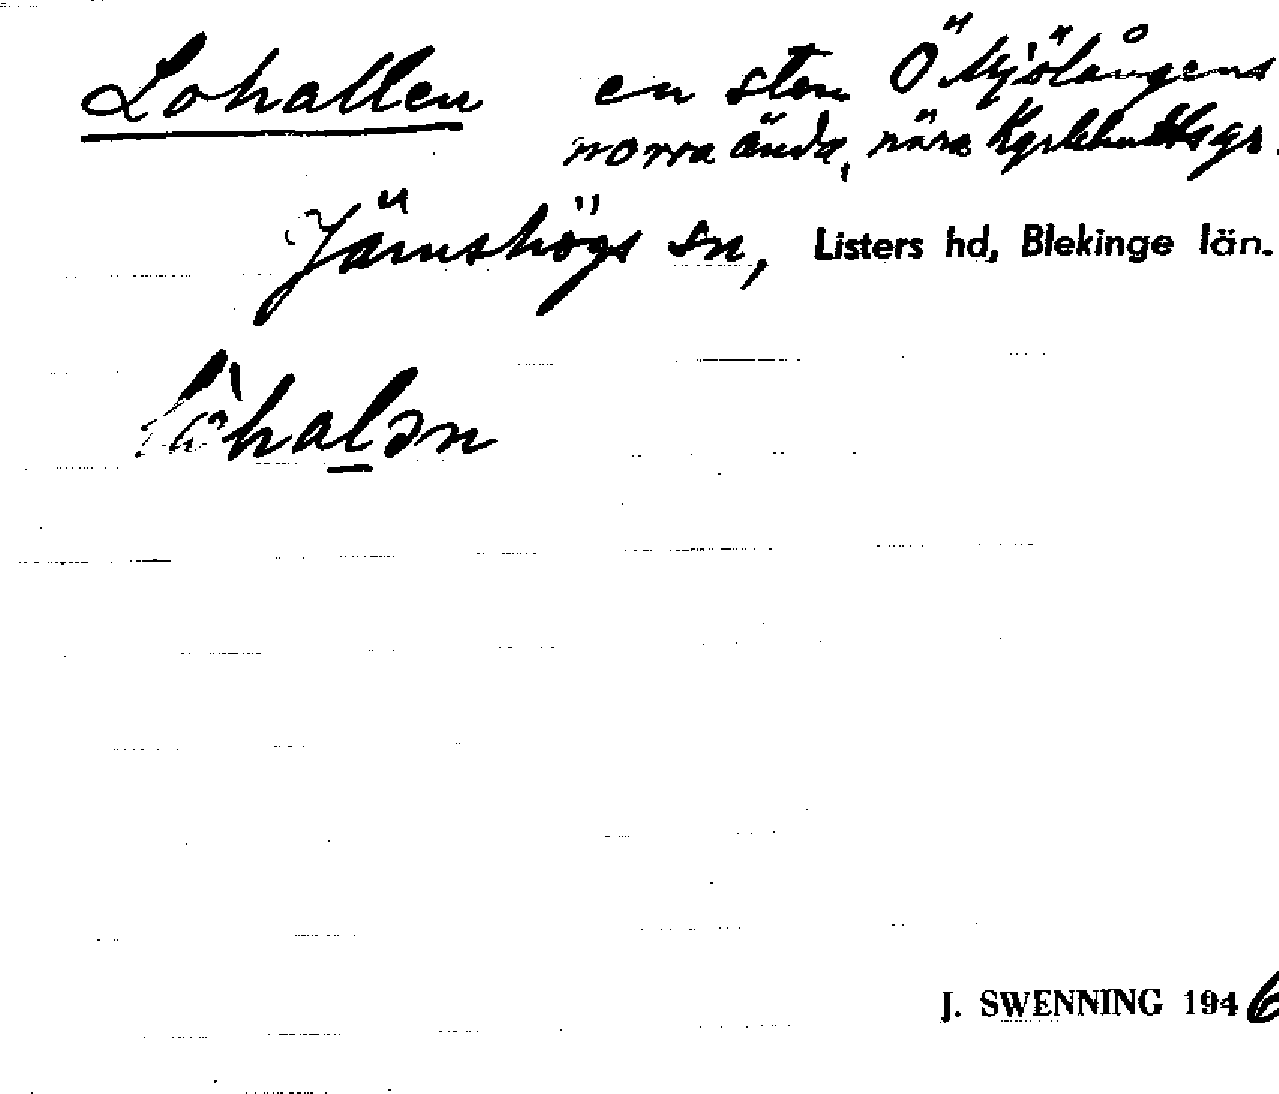 Lohallen en sten Ö Mjölångens
norra ända, nära Kyrkhultsgr.
Jämshögs sn, Listers hd, Blekinge län.
J. SWENNING 1946